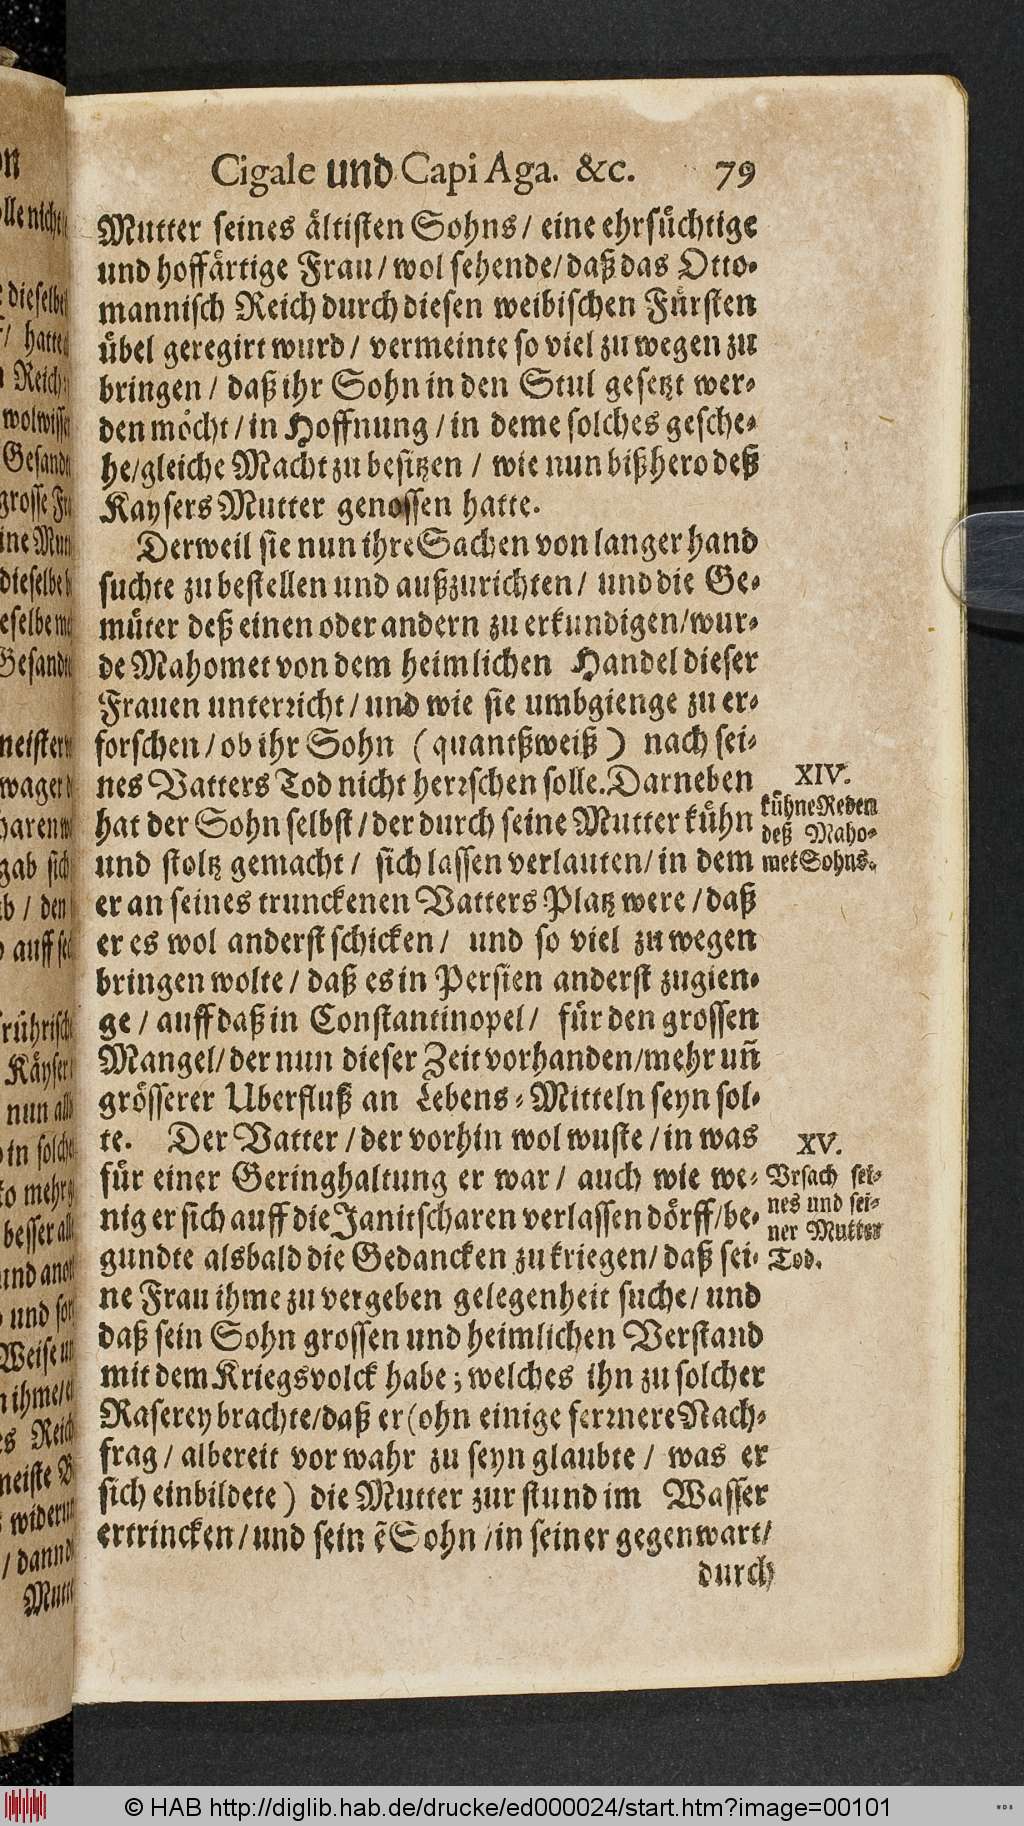 Cigale und Capi Aga. &c. 79
Mutter seines ältisten Sohns / eine ehrsüchtige
und hoffärtige Frau / wol sehende / daß das Otto-
mannisch Reich durch diesen weibischen Fürsten
übel geregirt wurd / vermeinte so viel zu wegen zu
bringen / daß ihr Sohn in den Stul gesetzt wer-
den möcht / in Hoffnung / in deme solches gesche-
he / gleiche Macht zu besitzen / wie nun bißhero deß
Kaysers Mutter genossen hatte.
Derweil sie nun ihre Sachen von langer hand
suchte zu bestellen und außzurichten / und die Ge-
müter deß einen oder andern zu erkundigen / wur-
de Mahomet von dem heimlichen Handel dieser
Frauen unterricht / und wie sie umbgienge zu er-
forschen / ob ihr Sohn (quantßweiß) nach sei-
nes Vatters Tod nicht herrschen solle. Darneben
hat der Sohn selbst / der durch seine Mutter kühn
und stoltz gemacht / sich lassen verlauten / in dem
er an seines trunckenen Vatters Platz were / daß
er es wol anderst schicken / und so viel zu wegen
bringen wolte / daß es in Persien anderst zugien-
ge / auff daß in Constantinopel / für den grossen
Mangel / der nun dieser Zeit vorhanden / mehr uñ
grösserer Uberfluß an Lebens-Mitteln seyn sol-
te. Der Vatter / der vorhin wol wuste / in was
für einer Geringhaltung er war / auch wie we-
nig er sich auff die Janitscharen verlassen dörff / be-
gundte alsbald die Gedancken zu kriegen / daß sei-
ne Frau ihme zu vergeben gelegenheit suche / und
daß sein Sohn grossen und heimlichen Verstand
mit dem Kriegsvolck habe; welches ihn zu solcher
Raserey brachte / daß er (ohn einige fermere Nach-
frag / albereit vor wahr zu seyn glaubte / was er
sich einbildete) die Mutter zur stund im Wasser
ertrincken / und sein ẽ Sohn / in seiner gegenwart /
durch
XIV.
kühne Reden
deß Maho-
met Sohns.
XV.
Vrsach sei-
nes und sei-
ner Mutter
Tod.
© HAB http://diglib.hab.de/drucke/ed000024/start.htm?image=00101